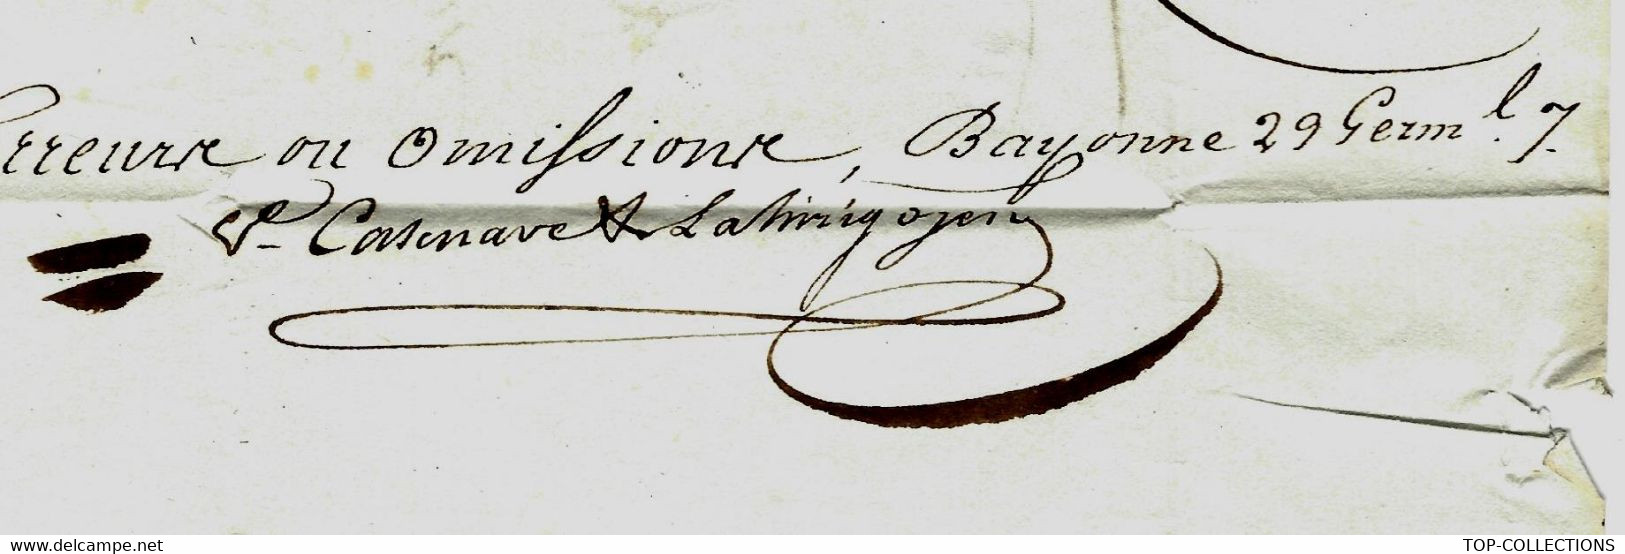 Erreurs ou Omissions, Bayonne 29 Germ.l 7.
Ve Casenave & Lahirigoyen
www.delcampe.net
TOP-COLLECTIONS